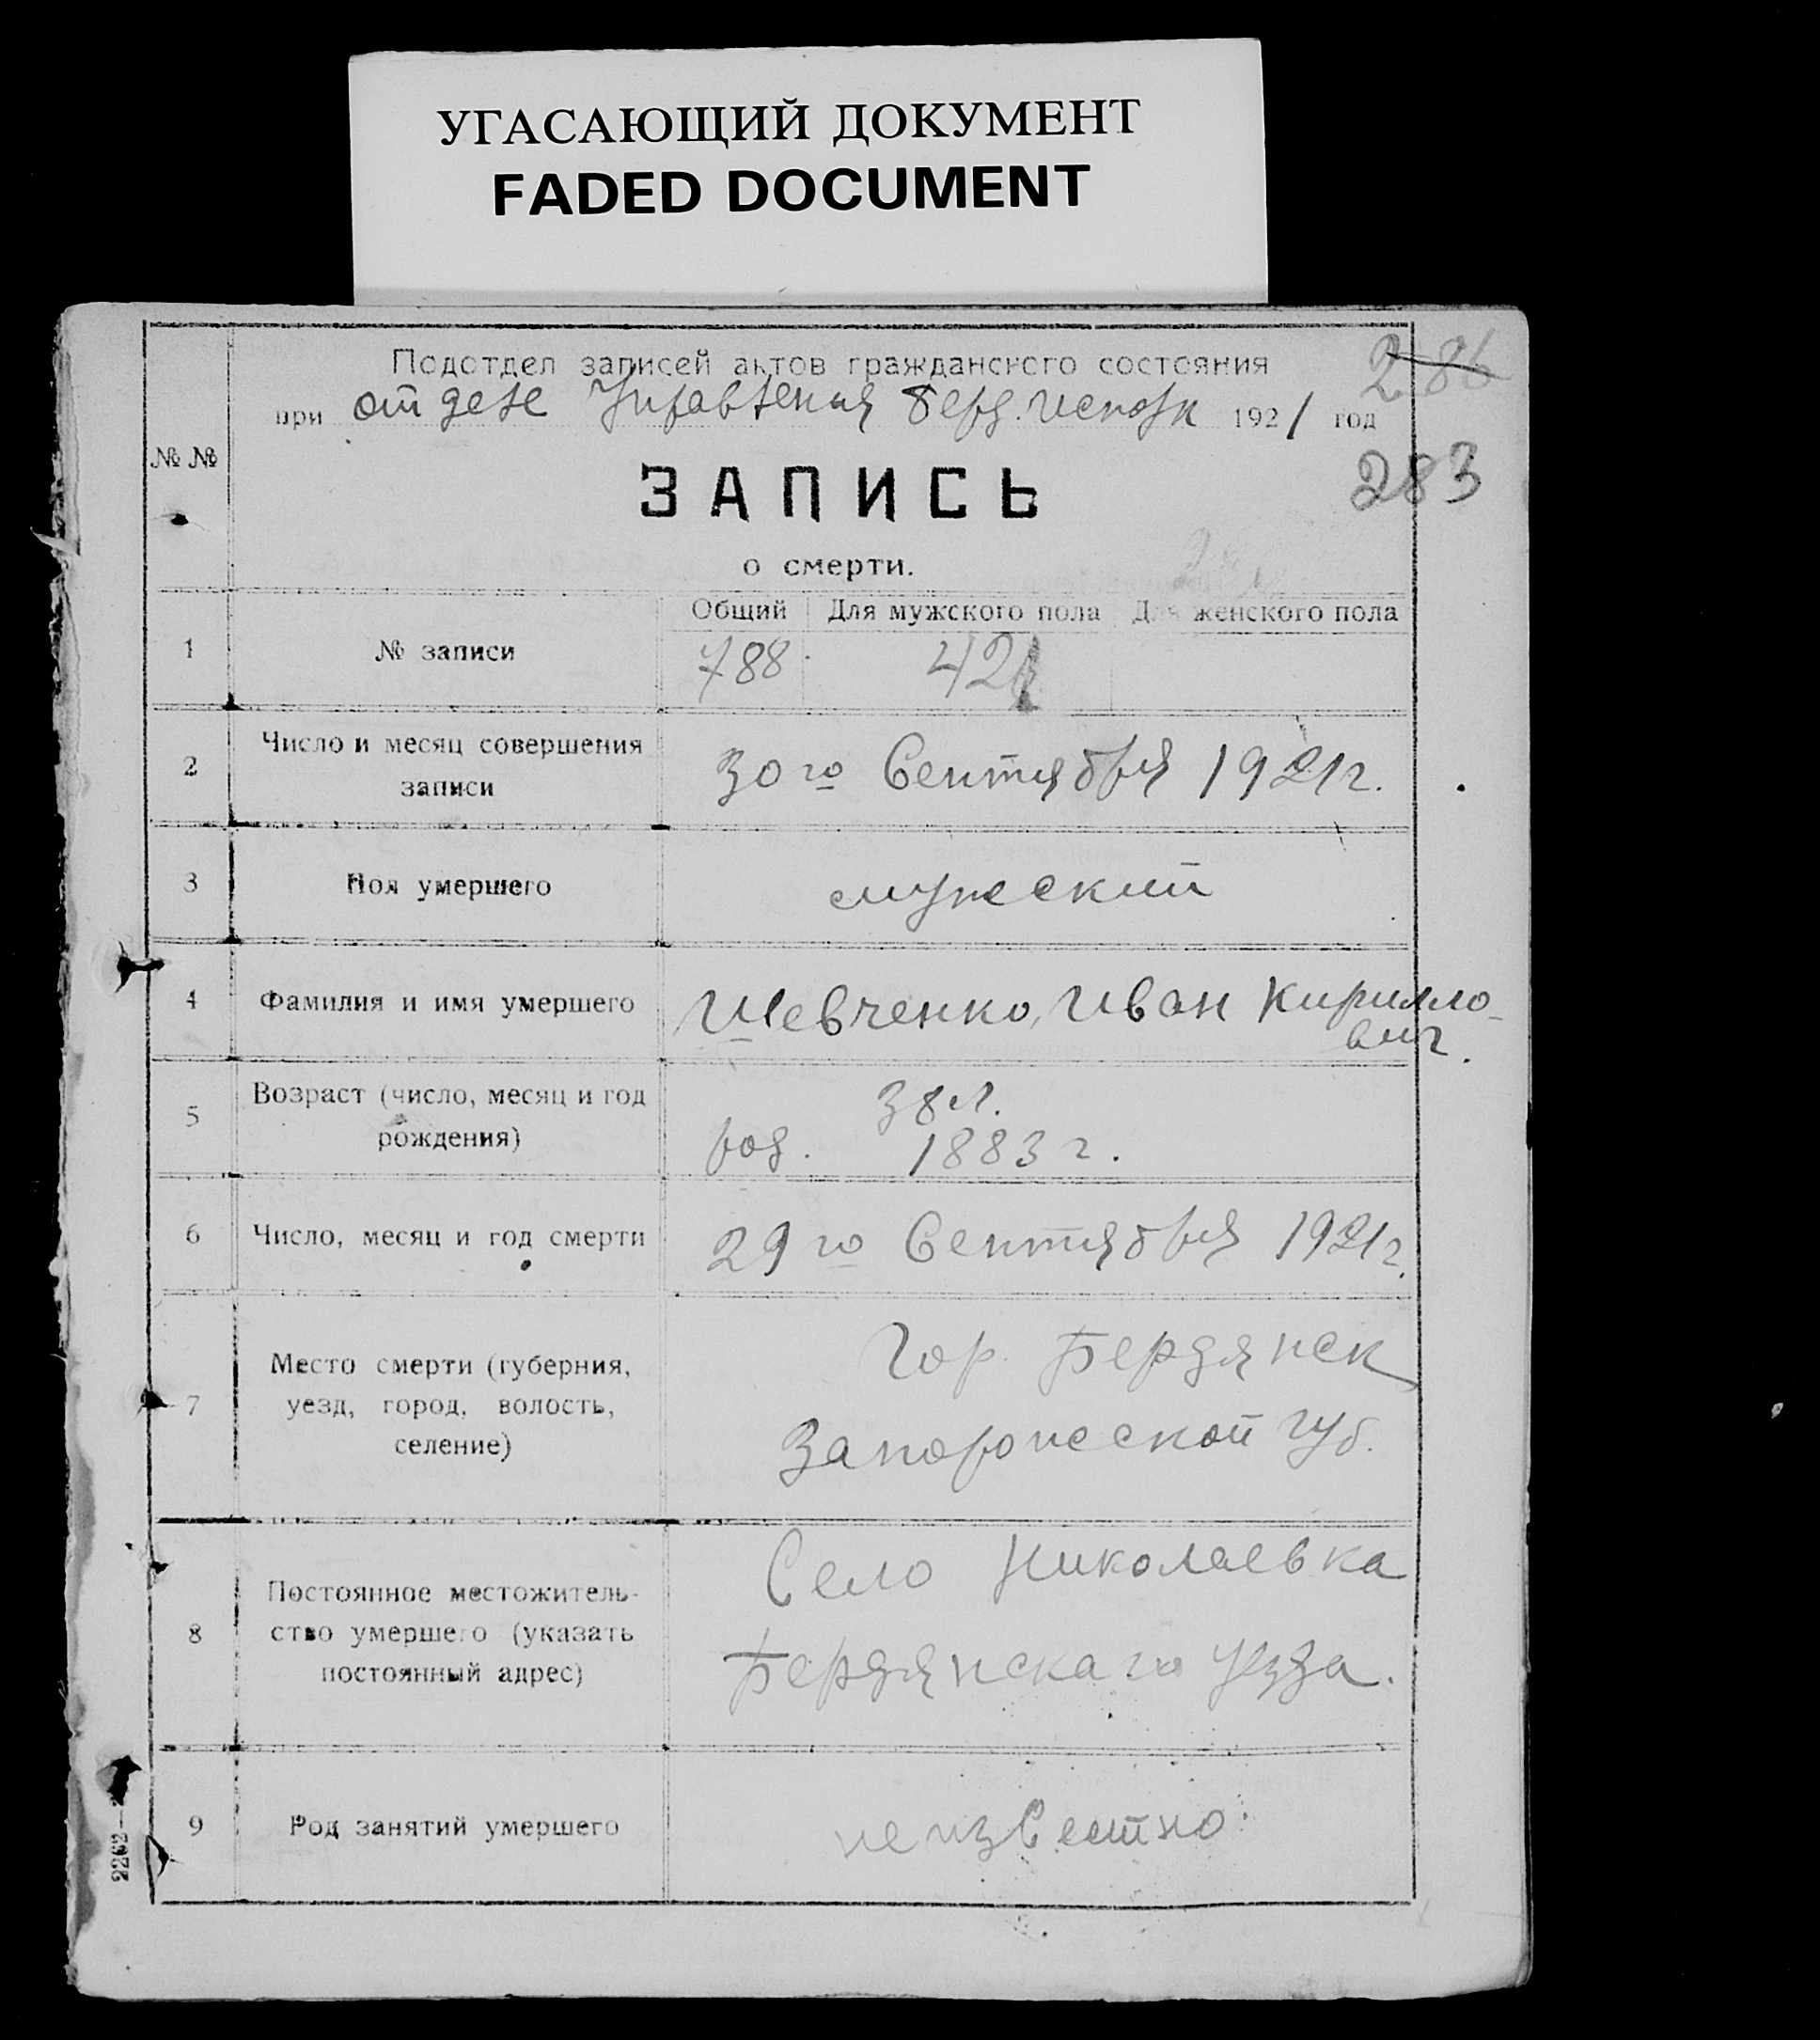 УГАСАЮЩИЙ ДОКУМЕНТ
FADED DOCUMENT
Подотдел записей актов гражданского состояния
286
при отделе Управления Берд. исполк 1921 год
№ №
283
ЗАПИСЬ
о смерти.
Общий Для мужского пола Для женского пола
1 № записи 788 42
2 Число и месяц совершения
записи
30 го Сентября 1921 г.
3 Пол умершего мужской
4 Фамилия и имя умершего Шевченко, Иван Кирилло-
вич.
5 Возраст (число, месяц и год
рождения)
38 л.
род. 1883 г.
6 Число, месяц и год смерти 29 го Сентября 1921 г.
7 Место смерти (губерния,
уезд, город, волость,
селение)
Гор. Бердянск
Запорожской губ.
8 Постоянное местожитель-
ство умершего (указать
постоянный адрес)
Село Николаевка
Бердянскаго уезда.
9 Род занятий умершего неизвестно
2262—